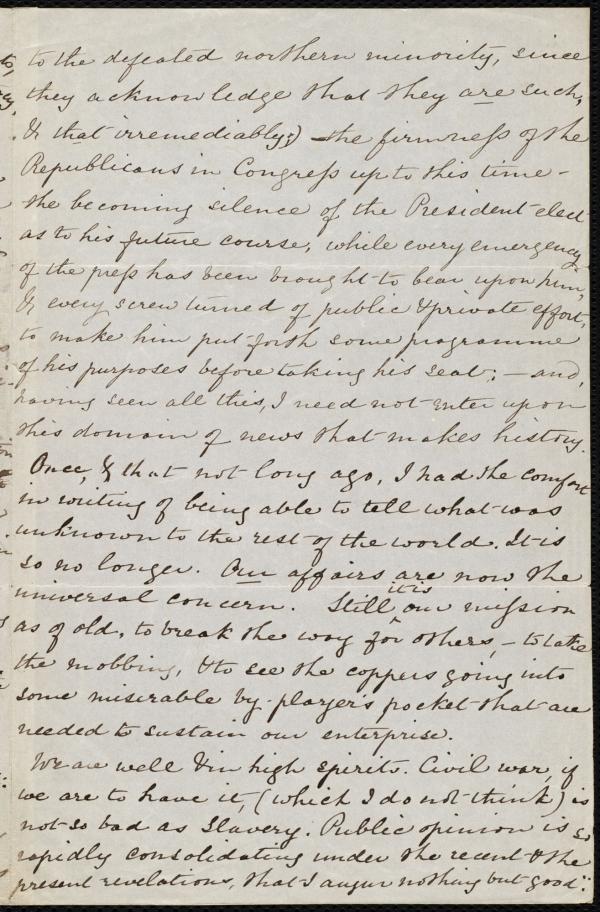 to the defeated northern minority, since
they acknowledge that they are such,
& that irremediably;) —the firmness of the
Republicans in Congress up to this time -
the becoming silence of the President elect
as to his future course, while every emergency
of the press has been brought to bear upon him,
& every screw turned of public & private effort,
to make him put forth some programme
of his purposes before taking his seat; — and,
having seen all this, I need not enter upon
this domain of news that makes history.
Once, & that not long ago, I had the comfort
in writing of being able to tell what was
unknown to the rest of the world. It is
so no longer. Our affairs are now the
universal concern. Still it is our mission
as of old, to break the way for others, — to take
the mobbing, & to see the coppers going into
some miserable by-player's pocket that are
needed to sustain our enterprise.
We are well & in high spirits. Civil war, if
we are to have it, (which I do not think) is
not so bad as Slavery. Public opinion is so
rapidly consolidating under the recent & the
present revelations, that I augur nothing but good: